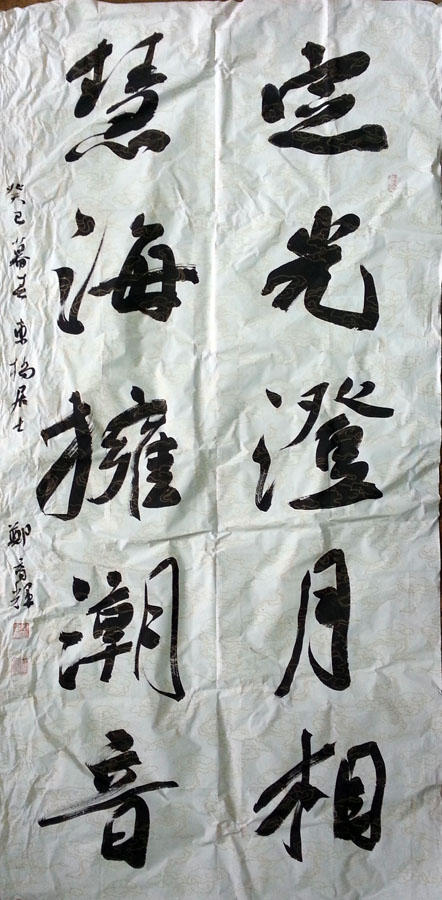 定光澄月相
慧海擁潮音
癸巳暮春 東楊居士 鄭育輝